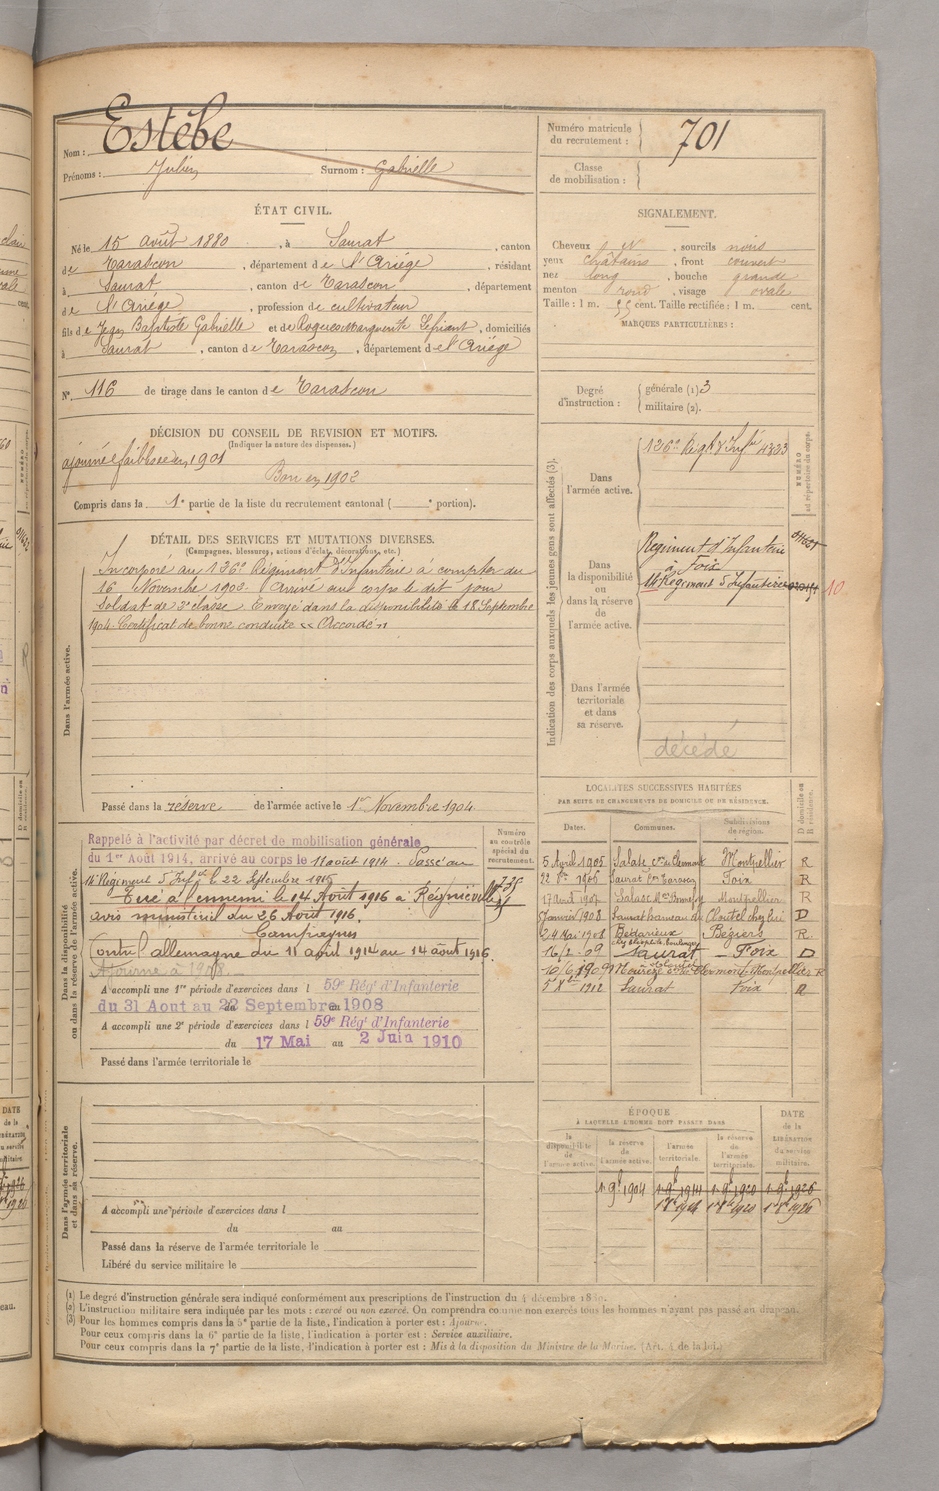 Nom : Estèbe
Prénoms : Julien Surnom : Gabrielle
Numéro matricule du recrutement : 701
Classe de mobilisation :
ÉTAT CIVIL.
Né le 15 août 1880, à Saurat, canton
de Tarascon, département de l'Ariège, résidant
à Saurat, canton de Tarascon, département
de l'Ariège, profession de cultivateur
fils de Jean Baptiste Gabrielle et de Roques Marguerite, domiciliés
à Saurat, canton de Tarascon, département de l'Ariège
N° 116 de tirage dans le canton de Tarascon
SIGNALEMENT.
Cheveux , sourcils noirs
yeux châtains, front couvert
nez long, bouche grande
menton rond, visage ovale
Taille : 1 m. 55 cent. Taille rectifiée : 1 m. cent.
MARQUES PARTICULIÈRES :
Degré d'instruction : générale (1) 3
militaire (2).
DÉCISION DU CONSEIL DE REVISION ET MOTIFS.
(Indiquer la nature des dispenses.)
ajourné faiblesse en 1901
Bon en 1902
Compris dans la 1e partie de la liste du recrutement cantonal ( e portion).
DÉTAIL DES SERVICES ET MUTATIONS DIVERSES.
(Campagnes, blessures, actions d'éclat, décorations, etc.)
Dans l'armée active.
Incorporé au 126e Régiment d'Infanterie à compter du
16 Novembre 1902. Arrivé au corps le dit jour
soldat de 2e classe. Envoyé dans la disponibilité le 18 Septembre
1904. Certificat de bonne conduite "Accordé"
Passé dans la réserve de l'armée active le 1er Novembre 1904.
Indication des corps auxquels les jeunes gens sont affectés (3).
NUMÉRO au répertoire du corps.
Dans l'armée active.
126e Régt d'Infie 4333
Dans la disponibilité ou dans la réserve de l'armée active.
Régiment d'Infanterie
à Foix
14e Régiment d'Infanterie
10
Dans l'armée territoriale et dans sa réserve.
décédé
Dans la disponibilité ou dans la réserve de l'armée active.
Numéro au contrôle spécial du recrutement.
Rappelé à l'activité par décret de mobilisation générale
du 1er Août 1914, arrivé au corps le 11 août 1914. Passé au
14e Régiment d'Infie le 22 Septembre 1915
Tué à l'ennemi le 14 Août 1916 à Régnéville
avis ministériel du 26 Août 1916.
Campagnes
Contre l'allemagne du 11 août 1914 au 14 août 1916.
Ajourné à 1908.
A accompli une 1re période d'exercices dans l 59e Rég' d'Infanterie
du 31 Aout au 22 Septembre 1908
A accompli une 2e période d'exercices dans l 59e Rég' d'Infanterie
du 17 Mai au 2 Juin 1910
Passé dans l'armée territoriale le
LOCALITÉS SUCCESSIVES HABITÉES
PAR SUITE DE CHANGEMENTS DE DOMICILE OU DE RÉSIDENCE.
Dates. Communes. Subdivisions de région. D domicile ou R résidence.
5 Avril 1905 Salasc Montpellier R
22 1906 Saurat Foix R
17 août 1907 Salasc Montpellier R
5 Janvier 1908 Saurat hameau du Cloutel chez lui D
24 Mai 1908 Bédarieux Béziers R.
16/2/09 Saurat - Foix D
10/6/1909 Mourèze Montpellier R
5 Xbre 1912 Saurat Foix R
ÉPOQUE
À LAQUELLE L'HOMME DOIT PASSER DANS
la disponibilité de l'armée active. la réserve de l'armée active. l'armée territoriale. la réserve de l'armée territoriale. DATE de la LIBÉRATION du service militaire.
1 9b 1904 1 9b 1914 1 9b 1920 1 9b 1926
Dans l'armée territoriale et dans sa réserve.
A accompli une période d'exercices dans l
du au
Passé dans la réserve de l'armée territoriale le
Libéré du service militaire le
(1) Le degré d'instruction générale sera indiqué conformément aux prescriptions de l'instruction du 4 décembre 1889.
(2) L'instruction militaire sera indiquée par les mots : exercé ou non exercé. On comprendra comme non exercés tous les hommes n'ayant pas passé au drapeau.
(3) Pour les hommes compris dans la 5e partie de la liste, l'indication à porter est : Ajourné.
Pour ceux compris dans la 6e partie de la liste, l'indication à porter est : Service auxiliaire.
Pour ceux compris dans la 7e partie de la liste, l'indication à porter est : Mis à la disposition du Ministre de la Marine. (Art. 4 de la loi.)